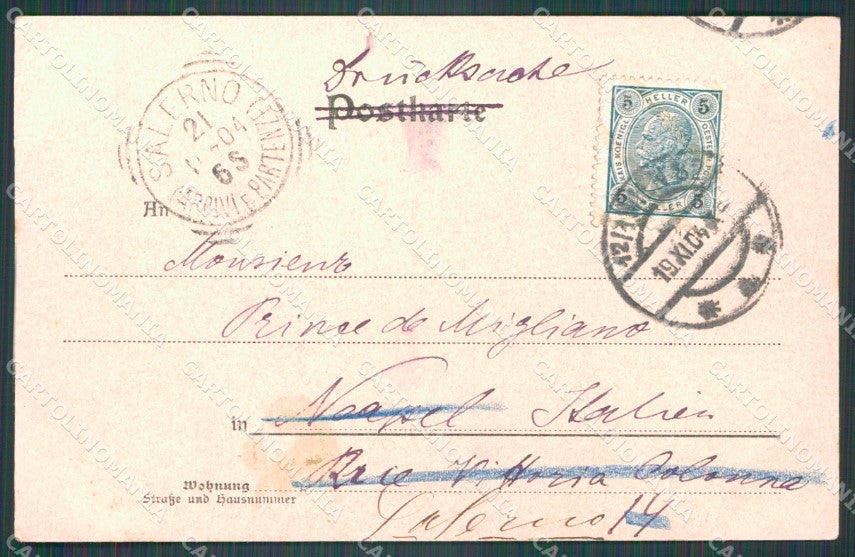 Drucksache
Postkarte
SALERNO
21
04
6S
(ARRIVI E PARTENZE)
5 HELLER 5
KAIS. KOENIGL. OESTERR.
5 HELLER 5
19.XI.04
An
Monsieur
Prince de Migliano
in Neapel Italien
Wohnung
Straße und Hausnummer
Vittoria Colonna
Salerno 14
CARTOLINOMANIA